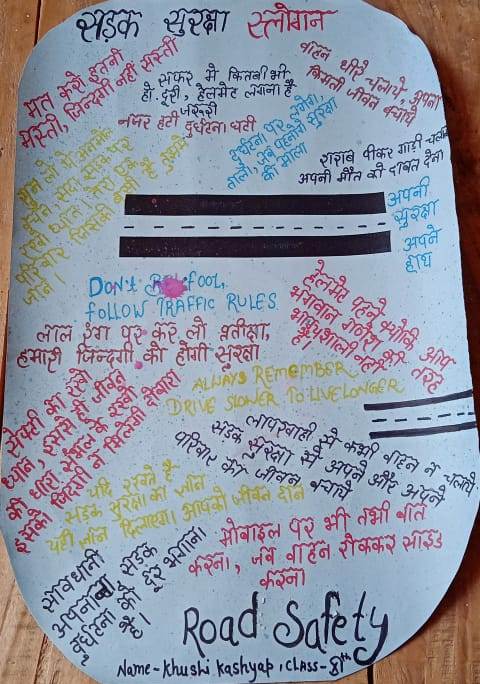 सड़क सुरक्षा स्लोगन
मत करो इतनी
मस्ती, जिन्दगी नहीं सस्ती
सफर में कितनी भी
हो दूरी, हेलमेट लगाना है
जरूरी
नजर हटी दुर्घटना घटी
वाहन धीरे चलाये, अपना
किमती जीवन बचाये
दुर्घटना पर लगेगा
ताला, जब पहनोगे सुरक्षा
की माला
शराब पीकर गाड़ी चलाना
अपनी मौत को दावत देना
सुन लो ये अनमोल
वचन, सदा सड़क पर
परिवार जिसकी
अपनी
सुरक्षा
अपने
हाथ
DON'T BE FOOL,
FOLLOW TRAFFIC RULES
लाल रंग पर कर लो प्रतीक्षा,
हमारी जिन्दगी की होगी सुरक्षा
हेलमेट पहने क्योंकि आप
भगवान गणेश की तरह
भाग्यशाली नहीं है
ALWAYS REMEMBER
DRIVE SLOWER TO LIVE LONGER
ध्यान, इससे ही जीवन
की धारा, संभल के रखो
इसको जिंदगी न मिलेगी दोबारा
लापरवाही से कभी वाहन न चलाये
सड़क सुरक्षा से अपने और अपने
परिवार का जीवन बचाये
यदि रखते है
सड़क सुरक्षा का ज्ञान
यही ज्ञान दिलाएगा आपको जीवन दान
मोबाइल पर भी तभी बात
करना, जब वाहन रोककर साइड
करना
सावधानी
अपनाना सड़क
दुर्घटना को दूर भगाना
है।
Road Safety
Name - Khushi Kashyap, Class - 8th